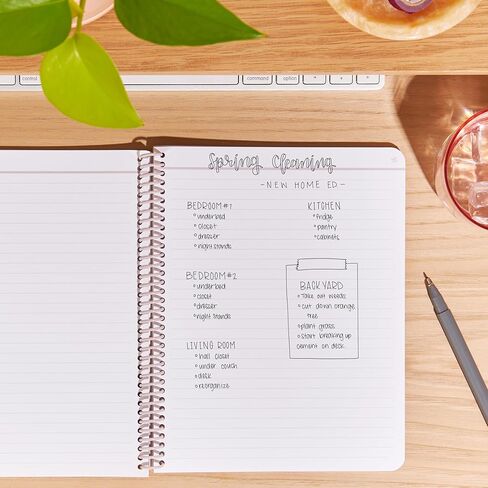 control
command
option
Spring Cleaning
- NEW HOME ED -
BEDROOM #1
underbed
closet
dresser
nightstands
KITCHEN
fridge
pantry
cabinets
BEDROOM #2
underbed
closet
dresser
nightstands
BACKYARD
Take out weeds
cut down orange
tree
plant grass
start breaking up
cement on deck.
LIVING ROOM
hall closet
under couch
desk
reorganize